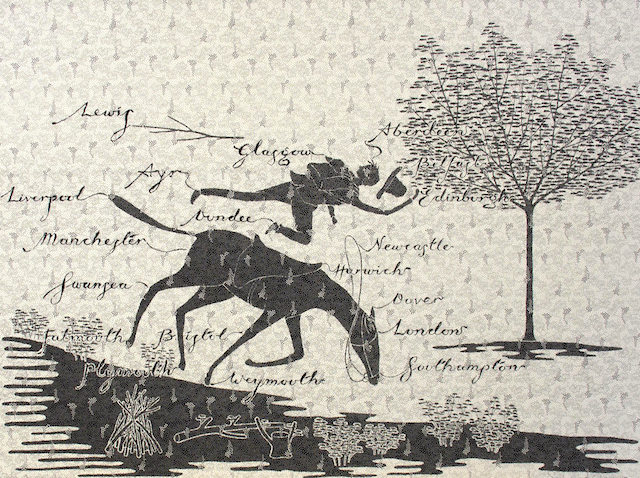 Lewis
Aberdeen
Glasgow
Belfast
Ayr
Edinburgh
Liverpool
Dundee
Manchester
Newcastle
Harwich
Swansea
Dover
Falmouth
Bristol
London
Plymouth
Weymouth
Southampton